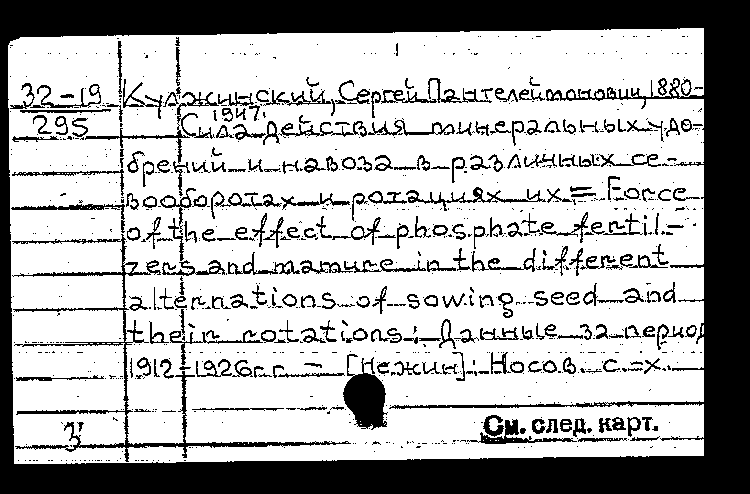 32-19
295
Кулжинский, Сергей Пантелеймонович, 1880-
1947.
Сила действия минеральных удо-
брений и навоза в различных се-
вооборотах и ротациях их = Force
of the effect of phosphate fertil-
zers and manure in the different
alternations of sowing seed and
their rotations: Данные за период
1912-1926гг. - [Нежин]: Носов. с.-х.
З
См. след. карт.